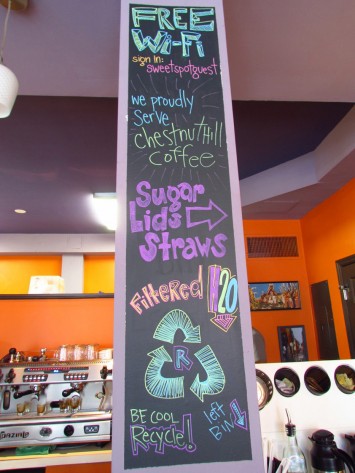 FREE
Wi-Fi
sign in:
sweetspotguest
we proudly
serve
chestnut Hill
COFFEE
Sugar
Lids
Straws
Filtered H20
R
BE COOL
Recycle!
left
BIN